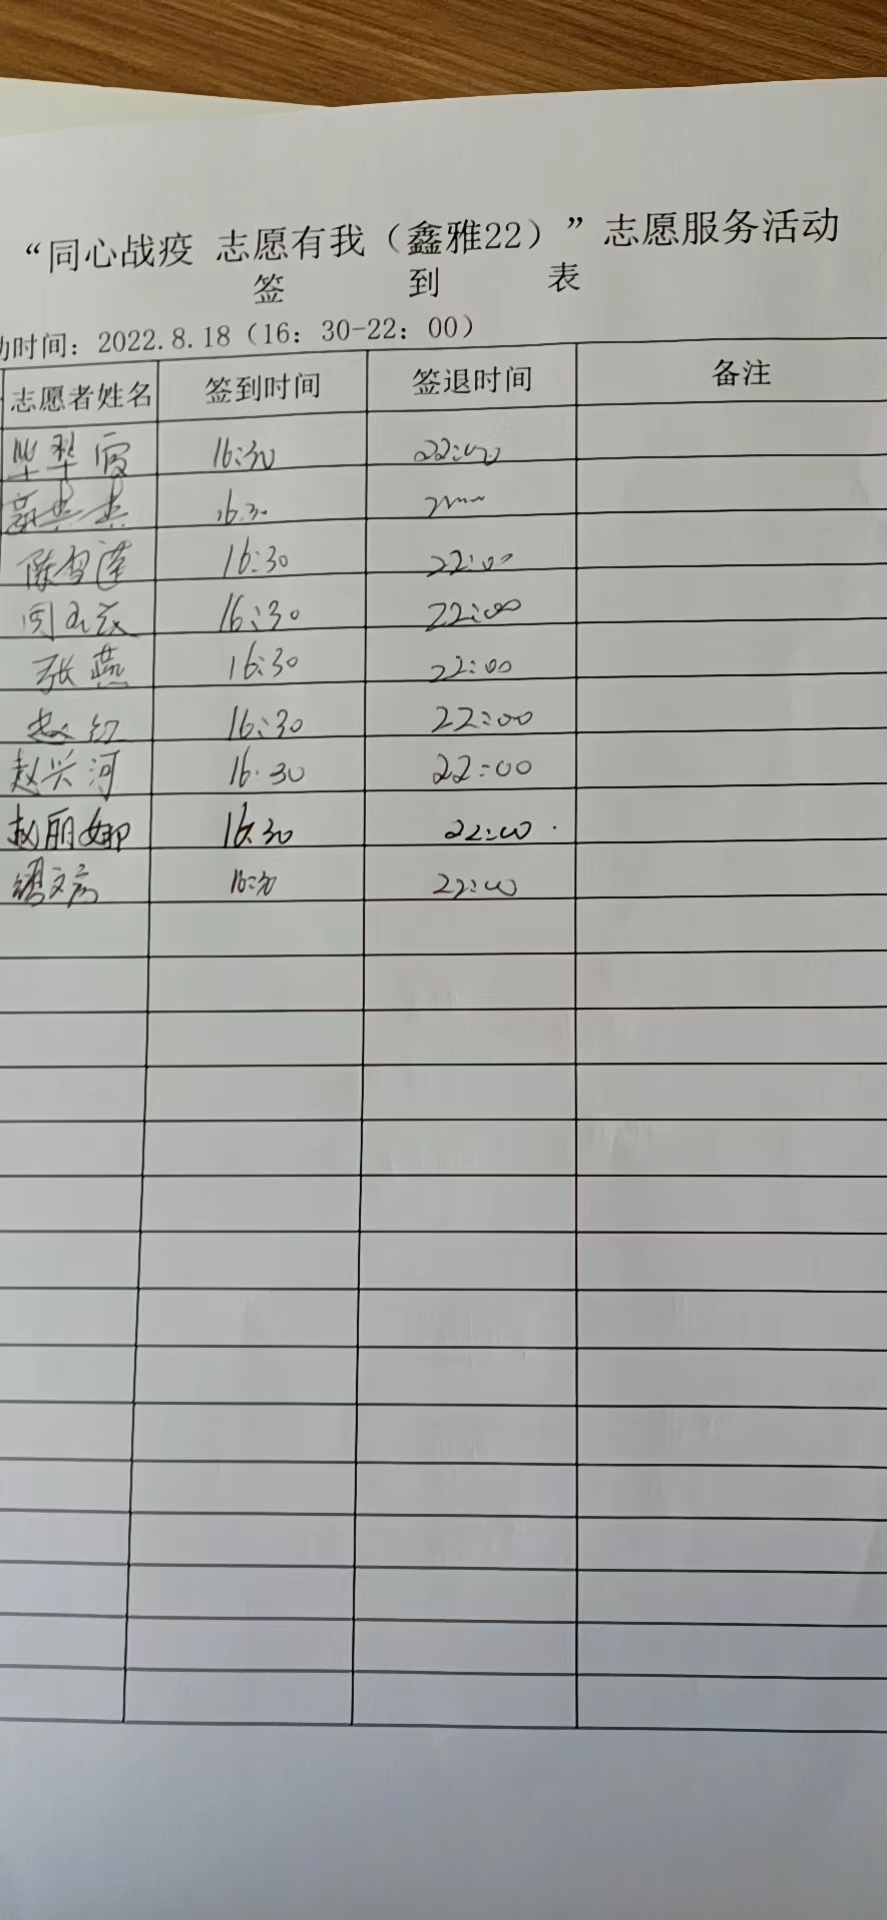 “同心战疫 志愿有我（鑫雅22）”志愿服务活动
签 到 表
动时间：2022.8.18（16：30-22：00）
志愿者姓名 签到时间 签退时间 备注
16:30 22:00
16:30
陈雪莲 16:30 22:00
16:30 22:00
张燕 16:30 22:00
赵红 16:30 22:00
赵兴河 16:30 22:00
赵丽娜 16:30 22:00
16:30 22:00